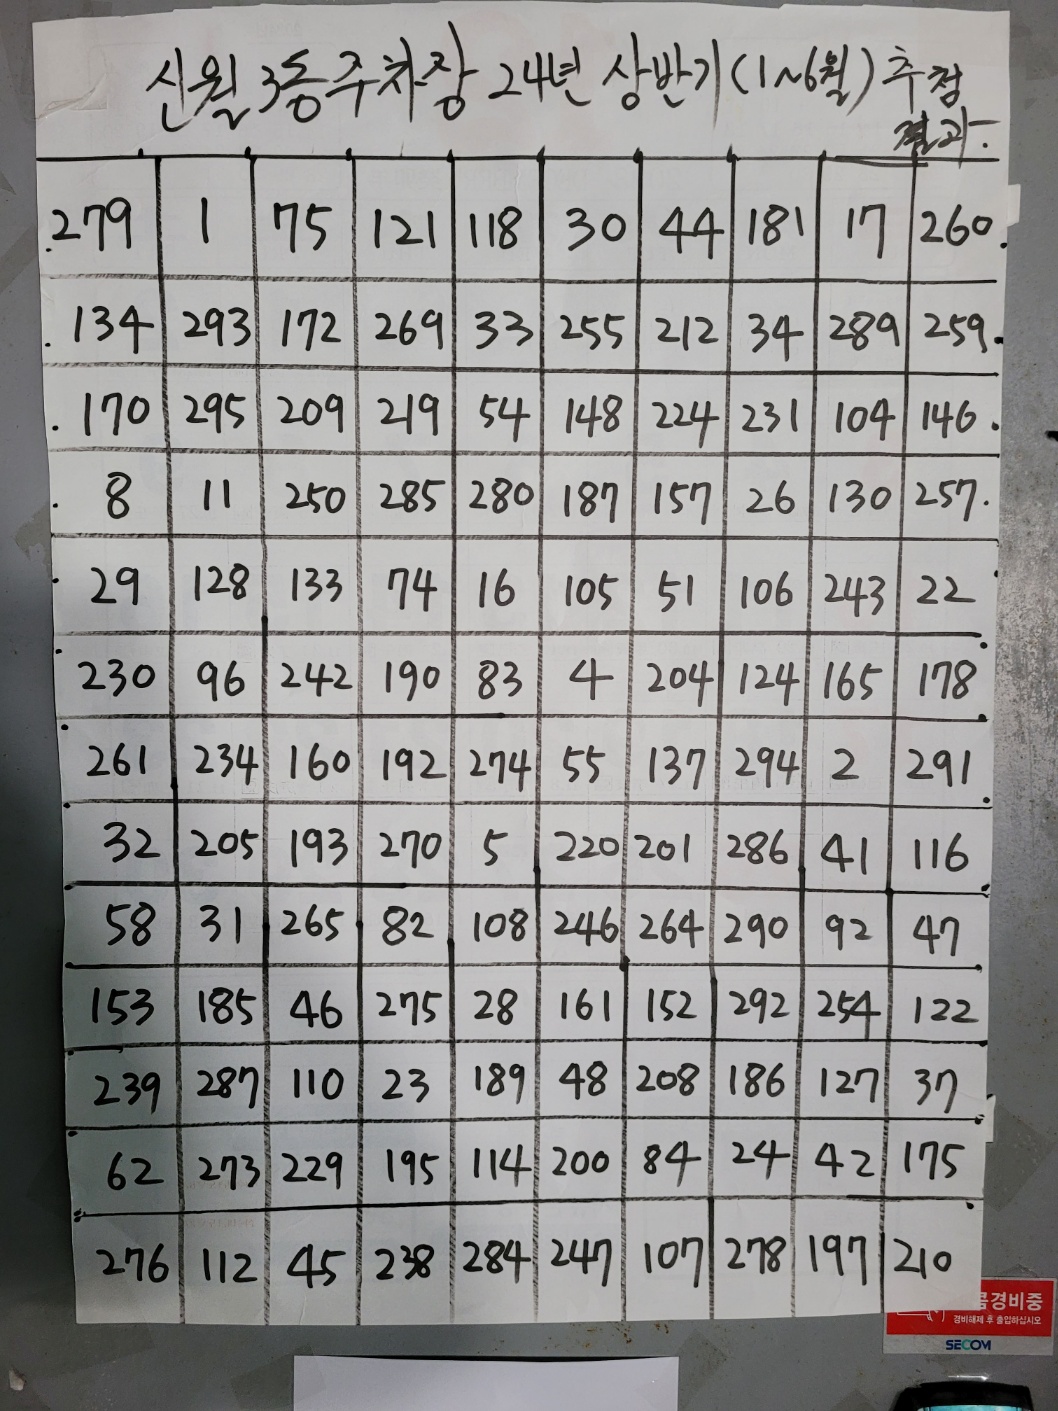 신월3동주차장 24년 상반기(1~6월) 추첨
결과-
279 1 75 121 118 30 44 181 17 260
134 293 172 269 33 255 212 34 289 259
170 295 209 219 54 148 224 231 104 146
8 11 250 285 280 187 157 26 130 257
29 128 133 74 16 105 51 106 243 22
230 96 242 190 83 4 204 124 165 178
261 234 160 192 274 55 137 294 2 291
32 205 193 270 5 220 201 286 41 116
58 31 265 82 108 246 264 290 92 47
153 185 46 275 28 161 152 292 254 122
239 287 110 23 189 48 208 186 127 37
62 273 229 195 114 200 84 24 42 175
276 112 45 238 284 247 107 278 197 210
콤경비중
경비해제 후 출입하십시오
SECOM